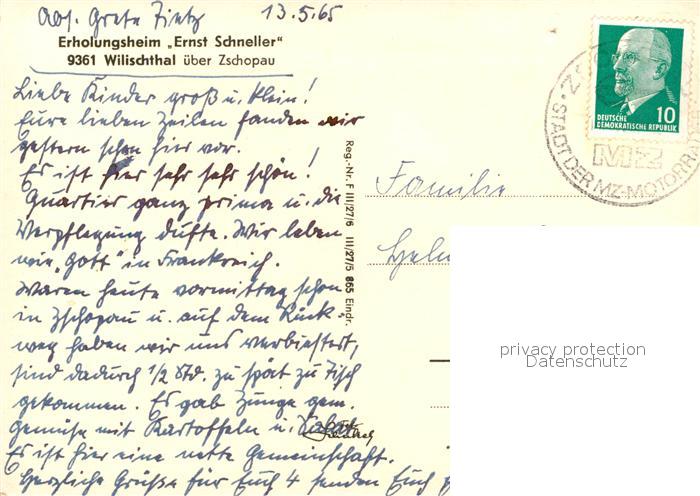 Abs. Grete Zietz 13.5.65
Erholungsheim „Ernst Schneller"
9361 Wilischthal über Zschopau
Liebe Kinder groß u. klein!
Eure lieben Zeilen fanden wir
gestern schon hier vor.
Es ist hier sehr sehr schön!
Quartier ganz prima u. die
Verpflegung dufte. Wir leben
wie „Gott" in Frankreich.
Waren heute vormittag schon
in Zschopau u. auf dem Rück-
weg haben wir uns verbiestert,
sind dadurch 1/2 Std. zu spät zu Tisch
gekommen. Es gab Zunge gem.
Gemüse mit Kartoffeln u. Salat
Es ist hier eine nette Gemeinschaft.
Herzliche Grüße für Euch 4 senden Euch
Reg.-Nr. F III/27/6 III/27/5 865 Eindr.
Familie
DEUTSCHE
DEMOKRATISCHE REPUBLIK
10
STADT DER MZ-MOTORRÄ
MZ
privacy protection
Datenschutz